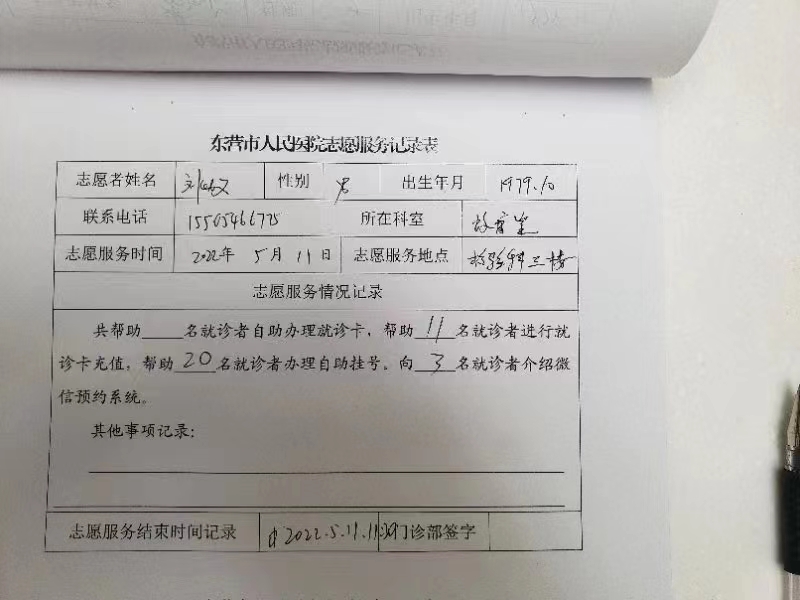 东营市人民医院志愿服务记录表
志愿者姓名 性别 男 出生年月 1979.10
联系电话 所在科室
志愿服务时间 2022年 5月11日 志愿服务地点 检验科三楼
志愿服务情况记录
共帮助____名就诊者自助办理就诊卡，帮助 11 名就诊者进行就
诊卡充值，帮助 20 名就诊者办理自助挂号。向 3 名就诊者介绍微
信预约系统。
其他事项记录：
志愿服务结束时间记录 2022.5.11.11: 门诊部签字